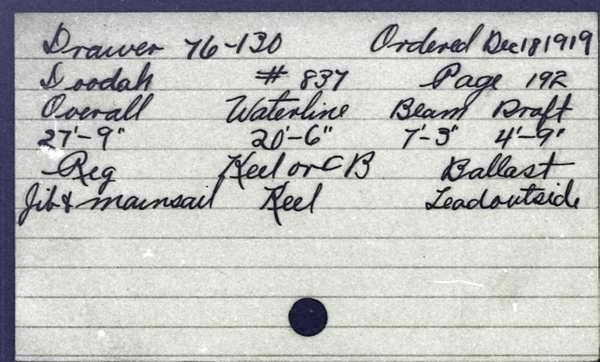 Drawer 76-130 Ordered Dec 18 1919
Doodah # 837 Page 192
Overall Waterline Beam Draft
27'-9" 20'-6" 7'-3" 4'-9"
Rig Keel or C B Ballast
Jib & mainsail Keel Lead outside